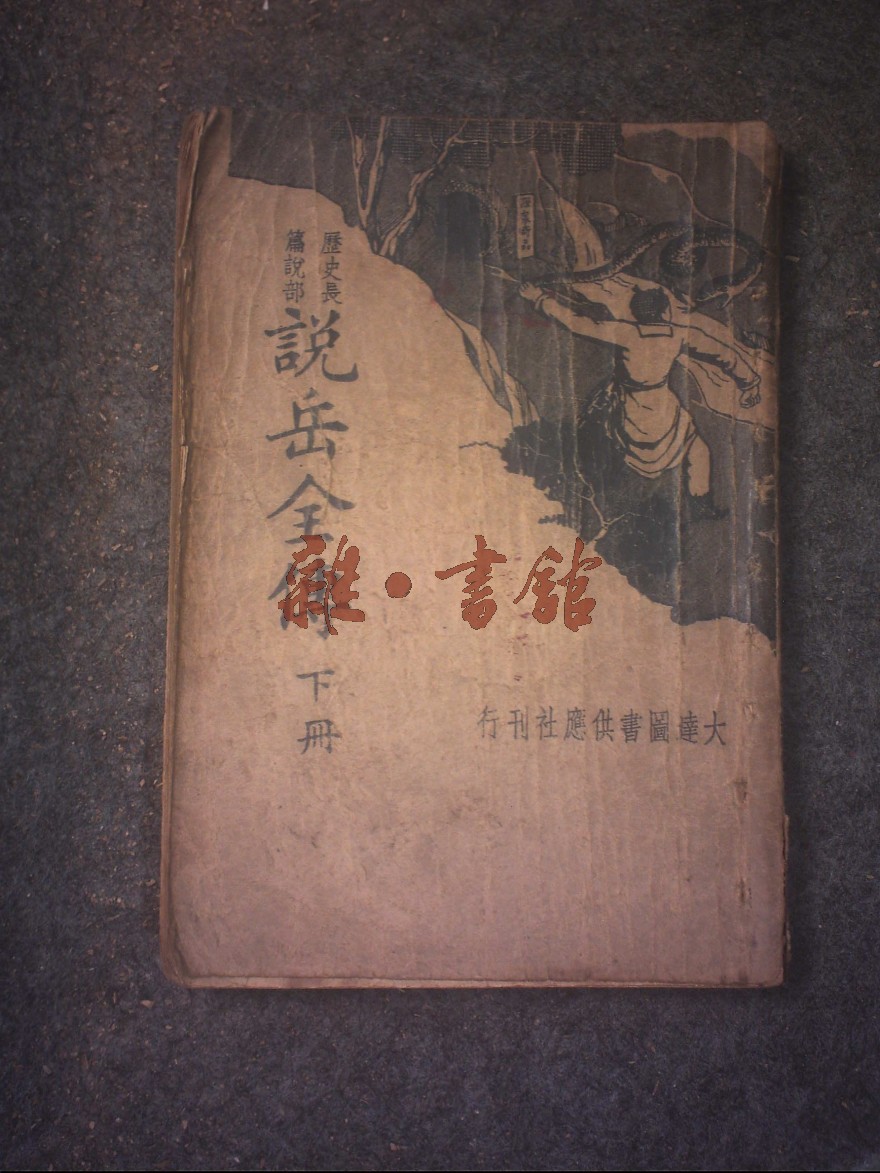 歷史長
篇說部
説岳全傳
下冊
大達圖書供應社刊行
雜·書舘